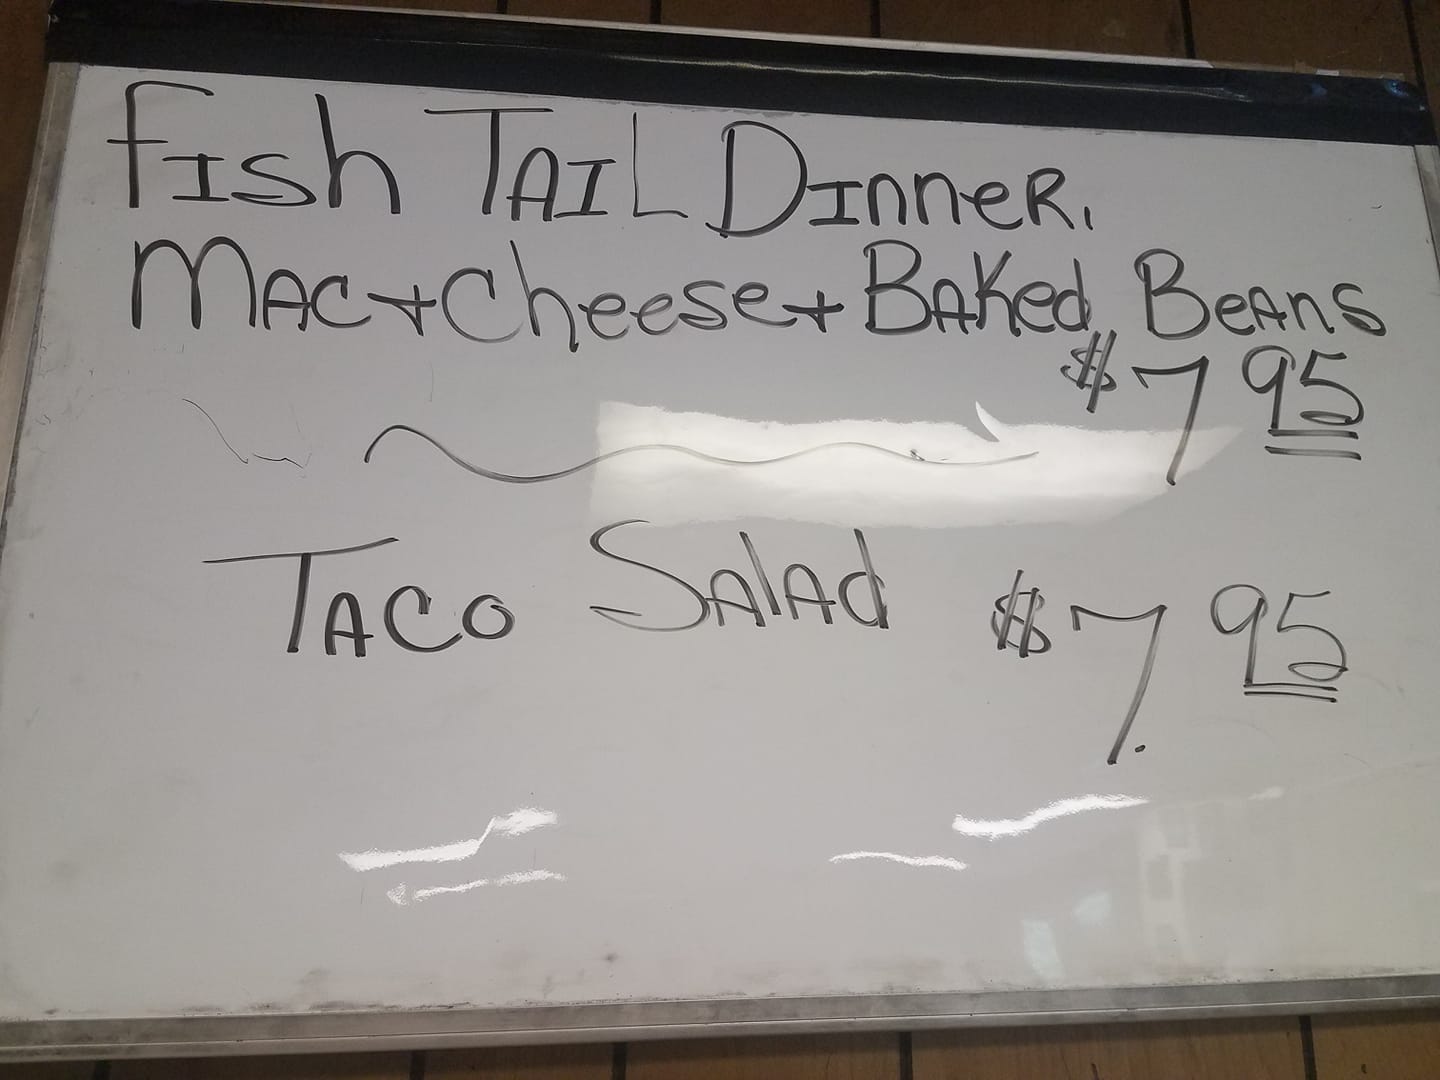 Fish TAIL DInneR,
MAC + Cheese + BAKed BeAns
$7 95
TACO SAlAd $7. 95